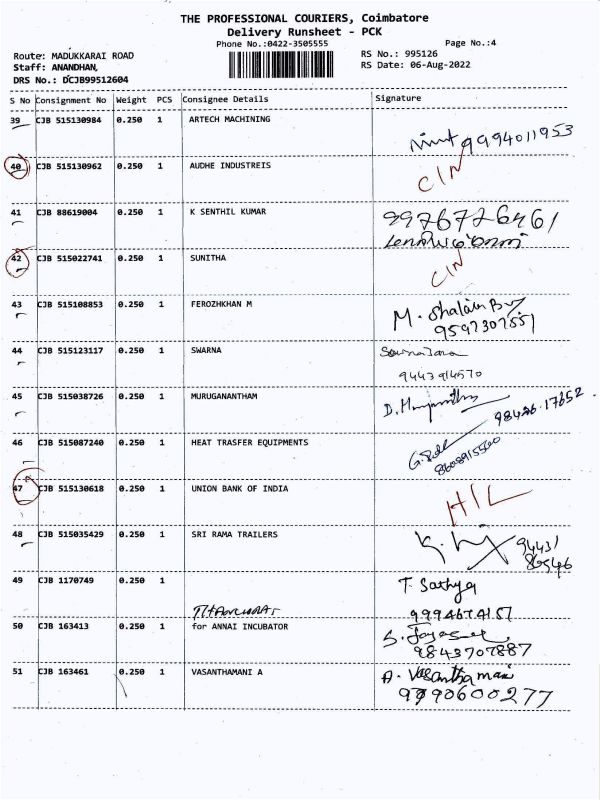 THE PROFESSIONAL COURIERS, Coimbatore
Delivery Runsheet - PCK
Phone No.:0422-3505555 Page No.:4
Route: MADUKKARAI ROAD RS No.: 995126
Staff: ANANDHAN, RS Date: 06-Aug-2022
DRS No.: DCJB99512604
S No Consignment No Weight PCS Consignee Details Signature
39 CJB 515130984 0.250 1 ARTECH MACHINING
9994011953
40 CJB 515130962 0.250 1 AUDHE INDUSTREIS
C/N
41 CJB 88619004 0.250 1 K SENTHIL KUMAR
9976726461
42 CJB 515022741 0.250 1 SUNITHA
C/N
43 CJB 515108853 0.250 1 FEROZHKHAN M
M.
9597307551
44 CJB 515123117 0.250 1 SWARNA
9443914570
45 CJB 515038726 0.250 1 MURUGANANTHAM
D.
98426.17652
46 CJB 515087240 0.250 1 HEAT TRASFER EQUIPMENTS
8608915560
47 CJB 515130618 0.250 1 UNION BANK OF INDIA
H/L
48 CJB 515035429 0.250 1 SRI RAMA TRAILERS
94431
86546
49 CJB 1170749 0.250 1
T. Sathya
9994674157
50 CJB 163413 0.250 1 for ANNAI INCUBATOR
S.
9843707887
51 CJB 163461 0.250 1 VASANTHAMANI A
A. Vasanthamani
9790600277